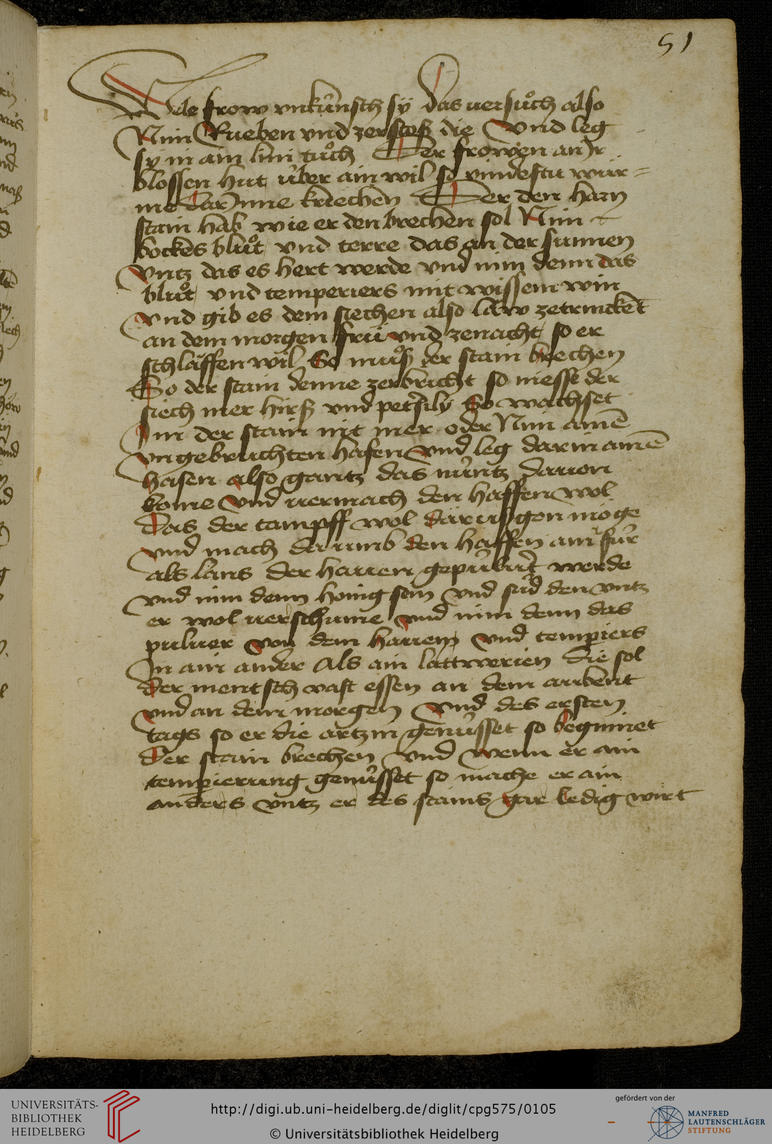 51
Wele frow vnkünsch sÿ Das versůch also
Nim Rueben vnd zerstoß die Vnd leg
sÿ in ain lini tůch Der frowen an Jr
blossen hut über ain wil so vindestu wür=
me Dar Jnne kriechen Wer den harn
stain hab wie er den brechen sol Nim
bockes blůt vnd terre das an der sunnen
vntz das es hert werde vnd nim denn das
blůt vnd temperiers mit wissem win
vnd gib es dem siechen also law zetrincket
an dem morgen frü vnd zenacht so er
schlaffen wil So můß der stain brechen
So der stain denne zerbricht so niesse der
siech mer hirß vnd petersily So wachset
Jm der stain nit mer oder Nim ainē
vngebruchten hafen Vnd leg darin ainē
hasen also gantz das nüntz dauon
kome Vnd vermach den haffen wol
Das der tampff wol dar vß gon moge
vnd mach der vmb den haffen ain für
als lang der haren gepulurt werde
vnd nim denn honig sain vnd süd den vntz
er wol verschume vnd nim denn das
puluer von dem harren vnd tempiers
Jn ain ander Als ain lattwerien die sol
der mentsch vast essen an dem aubent
vnd an dem morgen Vnd des ersten
tags so er die artznj genüsset so beginnet
Der stain brechen Vnd wenn er ain
tempierung genüsset so mache er ain
anders vntz er des stains gar ledig wirt
UNIVERSITÄTS-
BIBLIOTHEK
HEIDELBERG
http://digi.ub.uni-heidelberg.de/diglit/cpg575/0105
© Universitätsbibliothek Heidelberg
gefördert von der
MANFRED
LAUTENSCHLÄGER
STIFTUNG